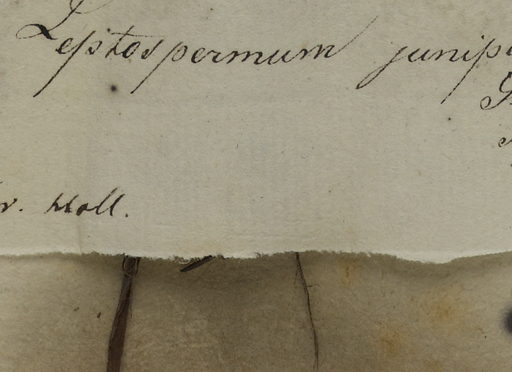 Leptospermum junip
v. Holl.